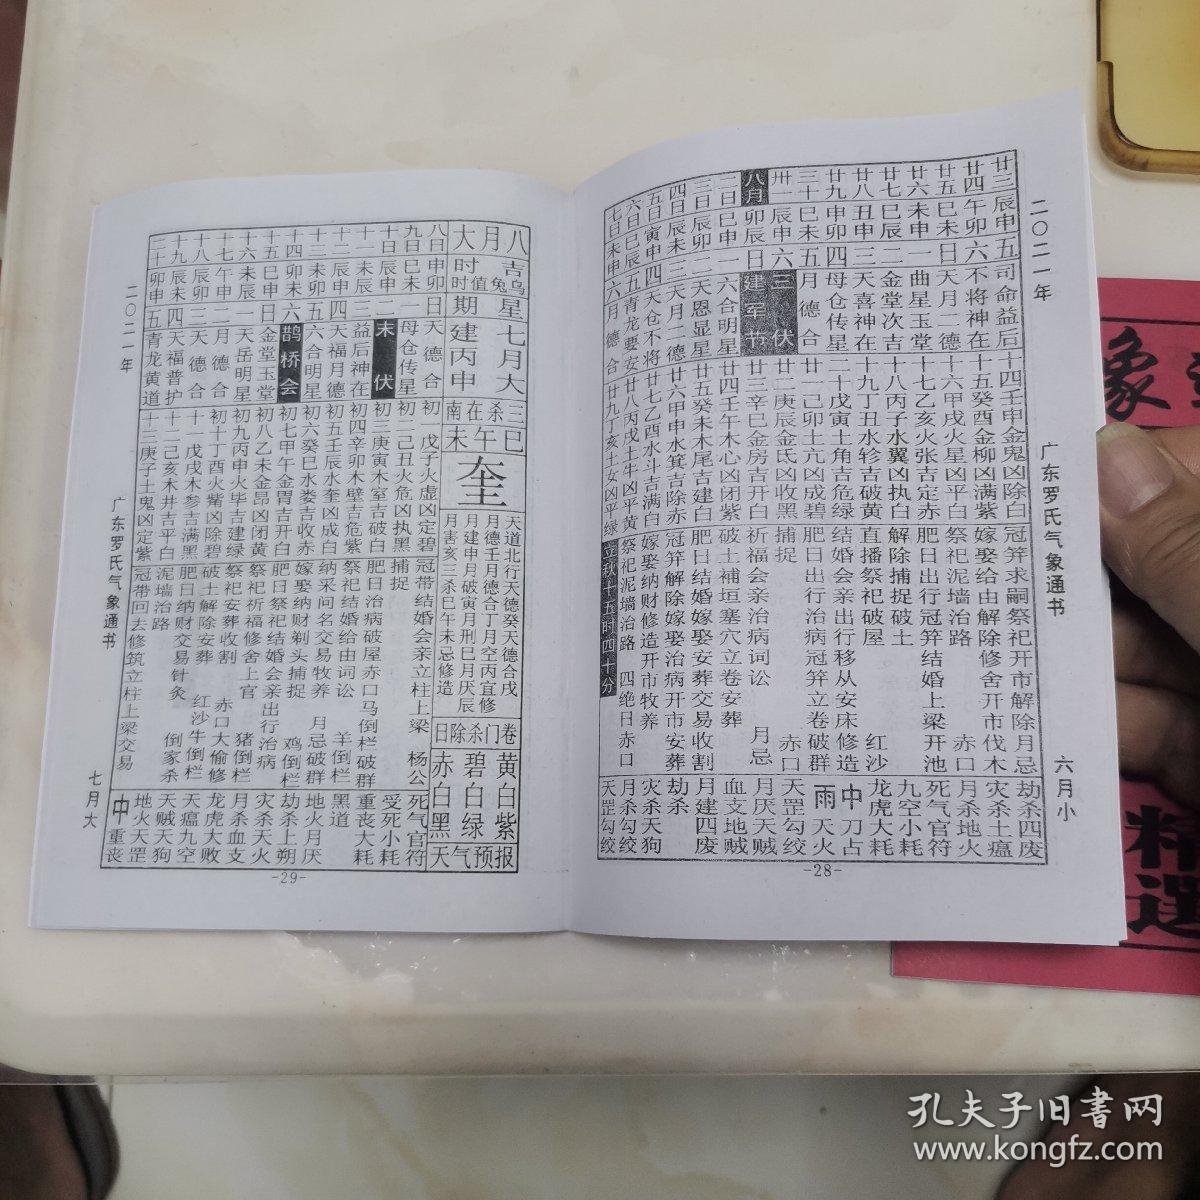 二〇二一年
广东罗氏气象通书
六月小
廿三辰申五司命益后
十四壬申金鬼凶除白
冠笄求嗣祭祀开市解除月忌
劫杀四废
廿四午卯六不将神在
十五癸酉金柳凶满紫
嫁娶给由解除修舍开市伐木
灾杀土瘟
廿五巳未日天月二德
十六甲戌火星凶平白
祭祀泥墙治路 赤口
月杀地火
廿六未申一曲星玉堂
十七乙亥火张吉定赤
肥日出行冠笄结婚上梁开池
死气官符
廿七巳辰二金堂次吉
十八丙子水翼凶执白
解除捕捉破土
九空小耗
廿八丑申三天喜神在
十九丁丑水轸吉破黄
直播祭祀破屋 红沙
龙虎大耗
廿九申卯四母仓传星
二十戊寅土角吉危绿
结婚会亲出行移从安床修造
中刀占
三十巳未五月德合
廿一己卯土亢凶成碧
肥日出行治病冠笄立卷破群
雨天火
卅一辰申六三伏
廿二庚辰金氐凶收黑
捕捉 赤口
天罡勾绞
八月卯辰日建军节
廿三辛巳金房吉开白
祈福会亲治病词讼 月忌
月厌天贼
二日巳申一六合明星
廿四壬午木心凶闭紫
破土补垣塞穴立卷安葬
血支地贼
三日辰卯二天恩显星
廿五癸未木尾吉建白
肥日结婚嫁娶安葬交易收割
月建四废
四日辰未三天月二德
廿六甲申水箕吉除赤
冠笄解除嫁娶治病开市安葬
劫杀
五日寅申四天仓不将
廿七乙酉水斗吉满白
嫁娶纳财修造开市牧养
灾杀天狗
六日巳辰五青龙要安
廿八丙戌土牛凶平黄
祭祀泥墙治路 四绝日赤口
月杀勾绞
七日未申六月德合
廿九丁亥土女凶平绿
立秋十五时四十分
天罡勾绞
-28-
八月大
吉时
乌兔值时
星期
七月大
建丙申
三杀在南
巳午未
奎
天道北行天德癸天德合戊
月德壬月德合丁月空丙宜修
月建申月破寅月刑巳月厌辰
月害亥三杀巳午未忌修造
卷门杀除日
黄白紫
碧白绿
赤白黑
天气预报
八日申卯日天德合
初一戊子火虚凶定碧
冠带结婚会亲立柱上梁 杨公
死气官符
九日巳未一母仓传星
初二己丑火危凶执黑
捕捉
受死小耗
十日辰申二末伏
初三庚寅木室吉破白
肥日治病破屋赤口马倒栏破群
重丧大耗
十一未辰三益后神在
初四辛卯木壁吉危紫
祭祀结婚给由词讼 羊倒栏
黑道
十二辰申四天福月德
初五壬辰水奎凶成白
纳采问名交易牧养 月忌破群
地火月厌
十三未卯五六合明星
初六癸巳水娄吉收赤
嫁娶纳财剃头捕捉 鸡倒栏
劫杀上朔
十四卯未六鹊桥会
初七甲午金胃吉开白
肥日祭祀结婚会亲出行治病
灾杀天火
十五巳申日金堂玉堂
初八乙未金昴凶闭黄
祭祀祈福修舍上官 猪倒栏
月杀血支
十六未辰一天岳明星
初九丙申火毕吉建绿
祭祀安葬收割 赤口大偷修
龙虎大败
十七午申二月德合
初十丁酉火觜凶除碧
破土解除安葬 红沙牛倒栏
天瘟九空
十八辰卯三天德合
十一戊戌木参吉满黑
肥日纳财交易针灸
天贼天狗
十九辰未四天福普护
十二己亥木井吉平白
泥墙治路 倒家杀
地火天罡
二十卯申五青龙黄道
十三庚子土鬼凶定紫
冠带回去修筑立柱上梁交易
中重丧
-29-
二〇二一年
广东罗氏气象通书
七月大
象
精選
孔夫子旧书网
www.kongfz.com